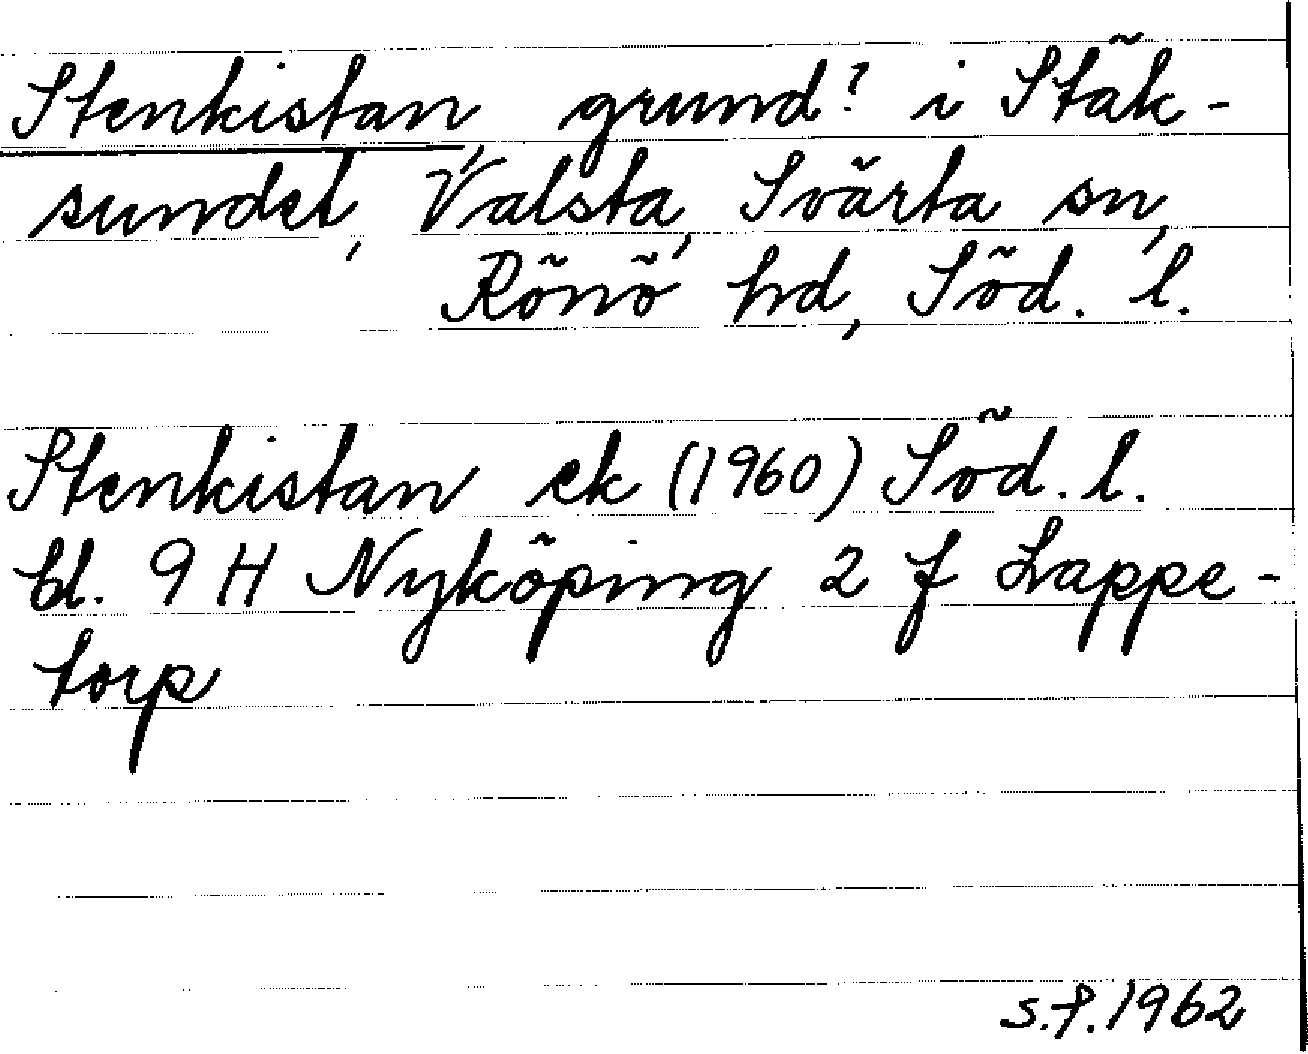 Stenkistan, grund? i Stäk-
sundet, Valsta, Svärta sn,
Rönö hd, Söd. l.
Stenkistan ek (1960) Söd. l.
bl. 9 H Nyköping 2 f Lappe-
torp
S.P. 1962